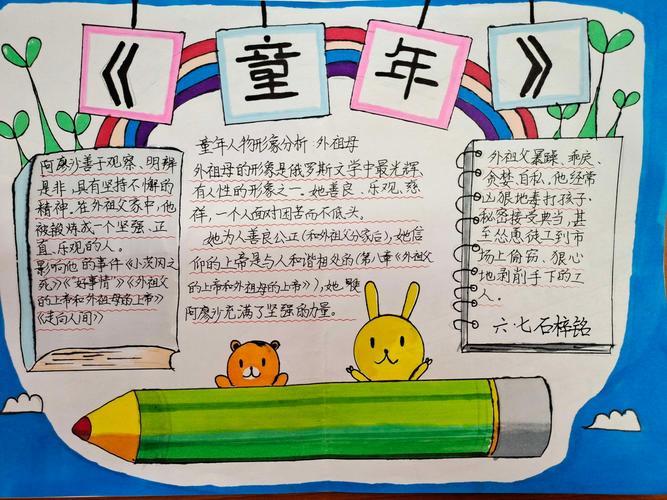 《童年》
阿廖沙善于观察、明辨
是非,具有坚持不懈的
精神。在外祖父家中,他
被锻炼成一个坚强、正
直、乐观的人。
影响他的事件《小茨冈之
死》《"好事情"》《外祖父
的上帝和外祖母的上帝》
《走向人间》》
童年人物形象分析 外祖母
外祖母的形象是俄罗斯文学中最光辉、
有人性的形象之一。她善良、乐观、慈
祥,一个人面对困苦而不低头。
她为人善良公正(和外祖父分家后),她信
仰的上帝是与人和谐相处的(第八章《外祖父
的上帝和外祖母的上帝》),她
阿廖沙充满了坚强的力量。
外祖父暴躁、乖戾、
贪婪、自私,他经常
凶狠地毒打孩子、
秘密接受典当,甚
至怂恿徒工到市
场上偷窃、狠心
地剥削手下的工
人。
六·七石梓铭